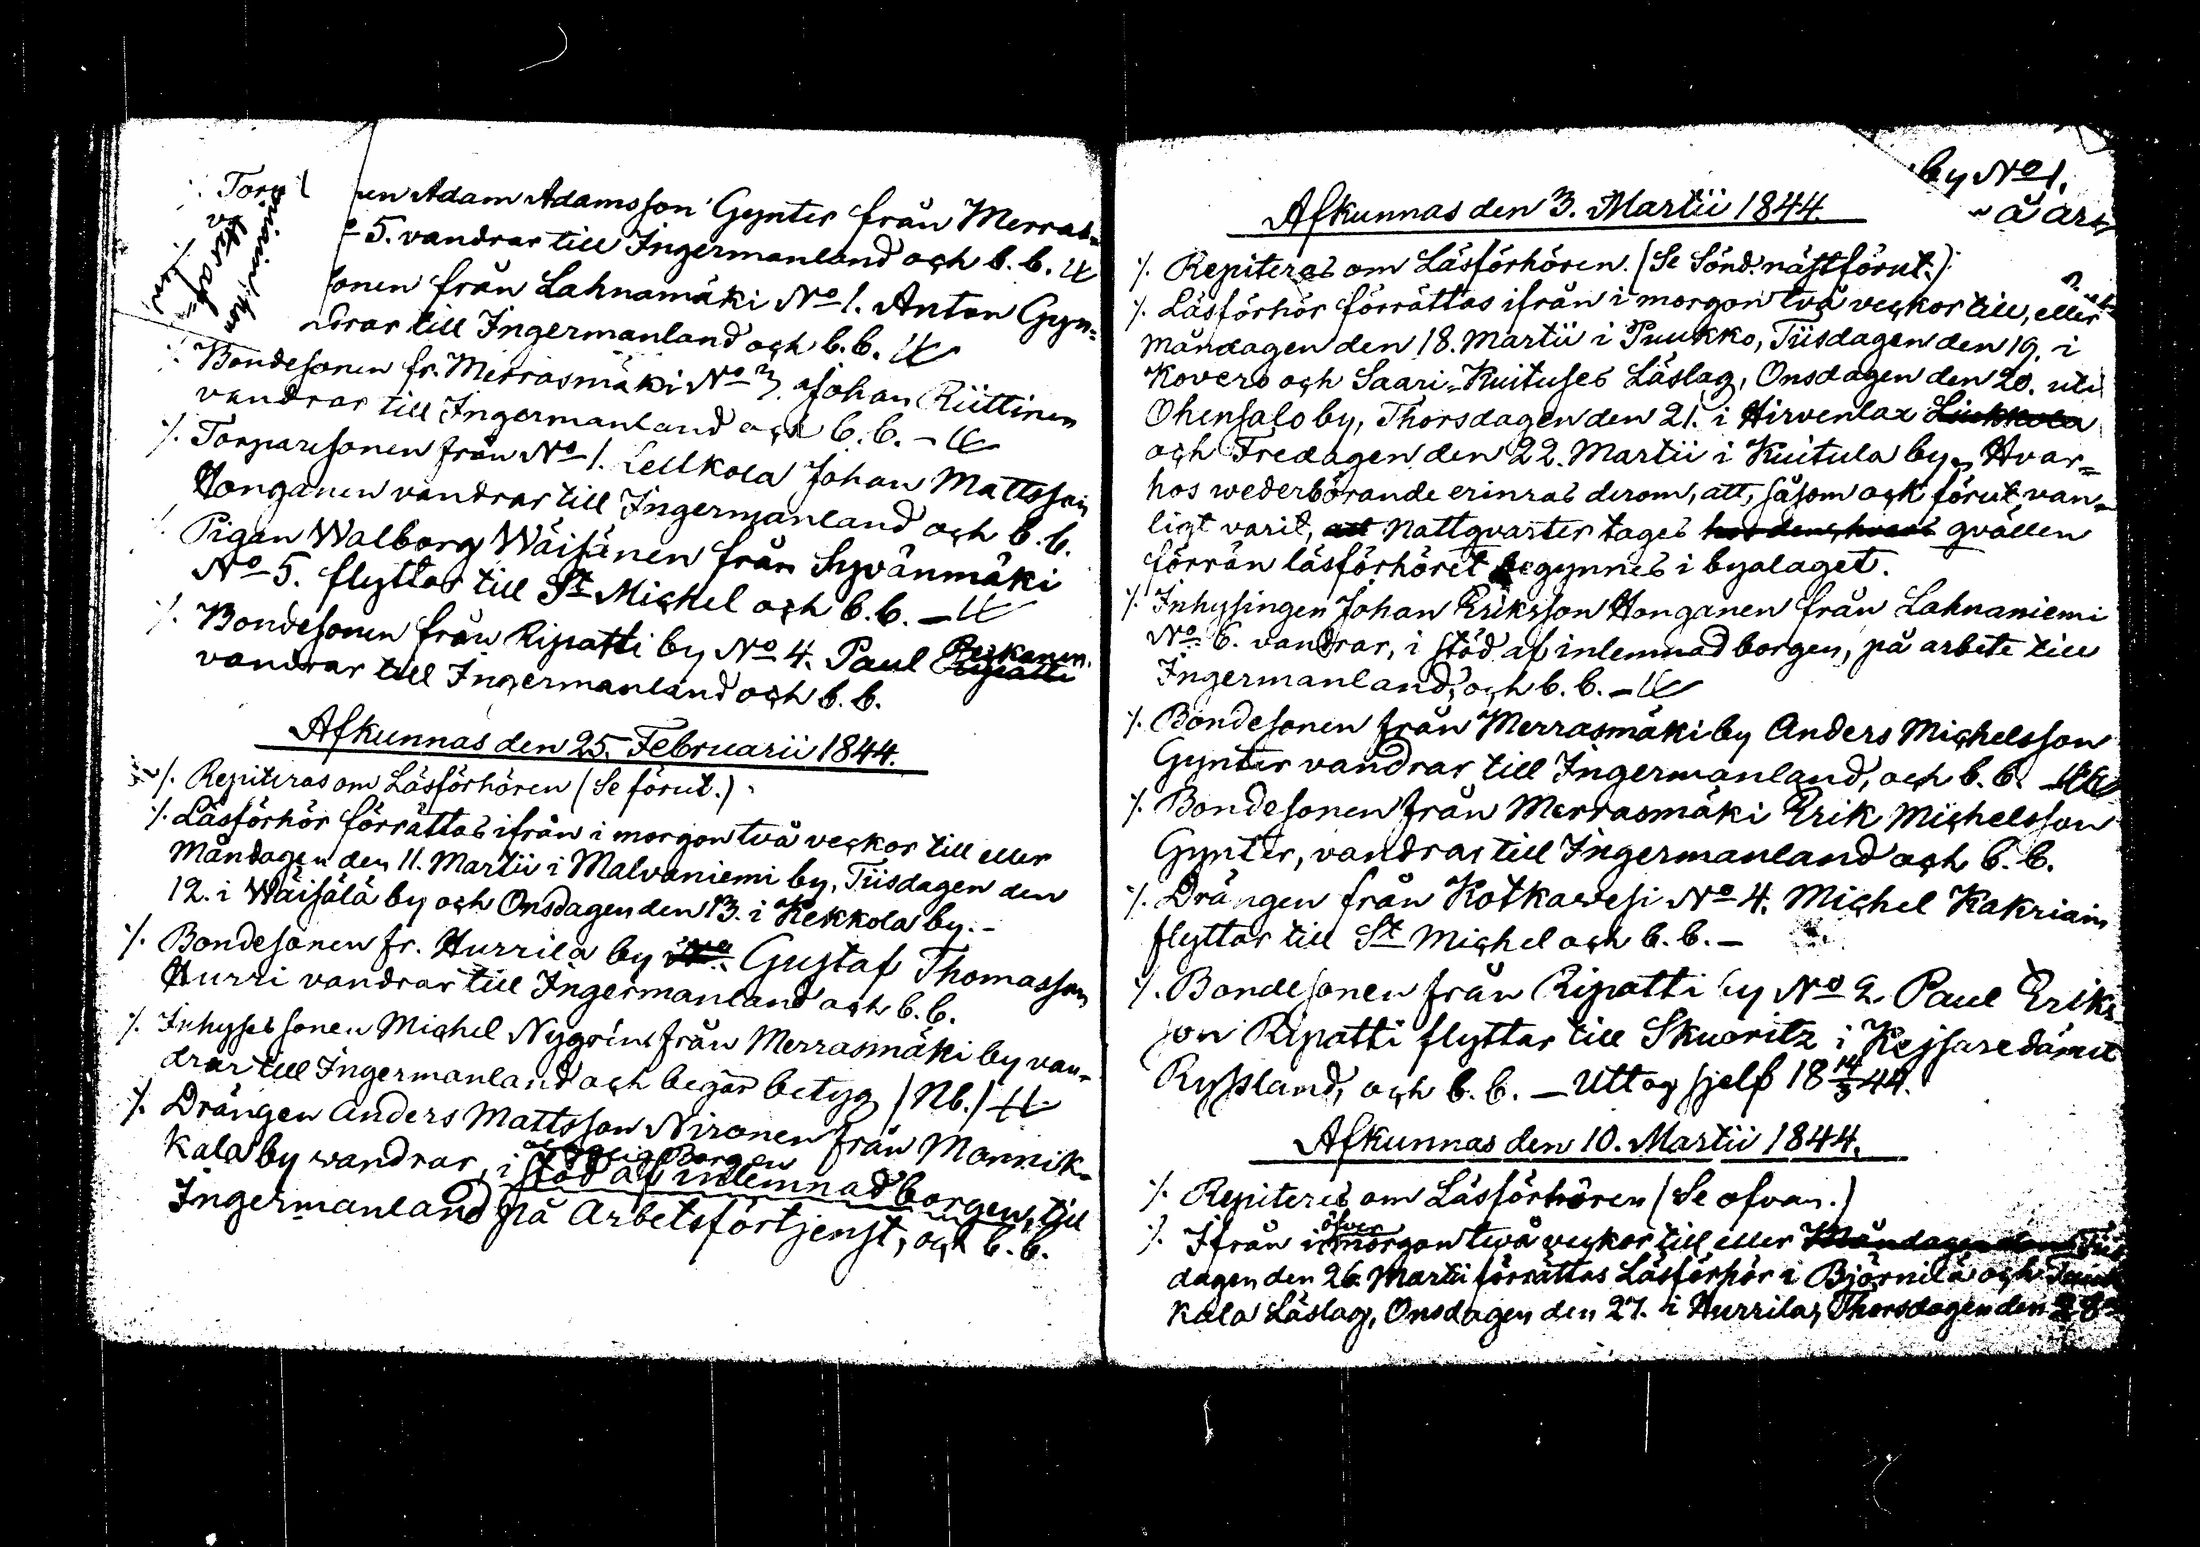 Torp
en Adam Adamsson Gynter från Merras-
5. vandrar till Ingermanland och b. b.
sonen från Lahnamäki No 1. Anton Gyn-
ndrar till Ingermanland och b. b.
Bondesonen fr. Merrasmäki No 3. Johan Riittinen
vandrar till Ingermanland och b. b. –
⁒ Torparesonen från No 1. Lellkola Johan Mattsson
Honganen vandrar till Ingermanland och b. b.
Pigan Walborg Wäisänen från Syvänmäki
No 5. flyttar till St Michel och b. b. –
⁒ Bondesonen från Ripatti by No 4. Paul Reskanen
vandrar till Ingermanland och b. b.
Afkunnas den 25. Februarii 1844.
⁒ Repiteras om Läsförhören (Se förut.)
⁒ Läsförhör förrättas ifrån i morgon två veckor till eller
Måndagen den 11. Martii i Malvaniemi by, Tiisdagen den
12. i Wäisälä by och Onsdagen den 13. i Kekkola by. –
⁒ Bondesonen fr. Hurrila by Gustaf Thomasson
Hurri vandrar till Ingermanland och b. b.
⁒ Inhyses sonen Michel Nygrén från Merrasmäki by van-
drar till Ingermanland och begär betyg (Nb.)
⁒ Drängen Anders Mattsson Nironen från Monnik-
kala by vandrar, i stöd af inlemnad borgen, till
Ingermanland på Arbetsförtjenst, och b. b.
by No 1.
å ar
Afkunnas den 3. Martii 1844
⁒ Repiteras om Läsförhören. (Se Sönd. nästförut.)
⁒ Läsförhör förrättas ifrån i morgon två veckor till, eller
Måndagen den 18. Martii i Puukko, Tiisdagen den 19. i
Kovero och Saari-Kuituses Läslag, Onsdagen den 20. uti
Ohensalo by, Thorsdagen den 21. i Hirvenlax Liukkola
och Fredagen den 22. Martii i Kuitula by. Hvar-
hos wederbörande erinras derom, att, såsom ock förut van-
ligt varit, att Nattqvarter tages qvällen
förrän läsförhöret begynnes i byalaget.
⁒ Inhysingen Johan Eriksson Honganen från Lahnaniemi
No 6. vandrar, i stöd af inlemnad borgen, på arbete till
Ingermanland, och b. b. –
⁒ Bondesonen från Merrasmäki by Anders Michelsson
Gynter vandrar till Ingermanland, och b. b.
⁒ Bondesonen från Merrasmäki Erik Michelsson
Gynter, vandrar till Ingermanland och b. b.
⁒ Drängen från Kotkavesi No 4. Michel Kakriain
flyttar till St Michel och b. b. –
⁒ Bondesonen från Ripatti by No 2. Paul Eriks-
son Ripatti flyttar till Skuoritz i Kejsaredömet
Ryssland, och b. b. – Uttog sjelf 18 14/3 44.
Afkunnas den 10. Martii 1844.
⁒ Repiteres om Läsförhören (Se ofvan.)
⁒ Ifrån i öfver morgon två veckor till eller Måndagen den Tiis
dagen den 26. Martii förrättas Läsförhör i Björnilä och
kala Läslag, Onsdagen den 27. i Hurrila, Thorsdagen den 28